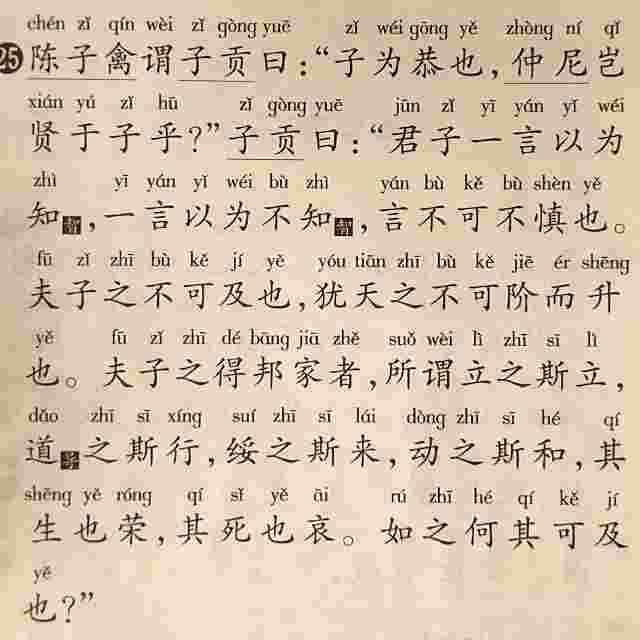 chén zǐ qín wèi zǐ gòng yuē zǐ wéi gōng yě zhòng ní qǐ
25 陈子禽谓子贡曰：“子为恭也，仲尼岂
xián yú zǐ hū zǐ gòng yuē jūn zǐ yī yán yǐ wéi
贤于子乎？”子贡曰：“君子一言以为
zhì yī yán yǐ wéi bù zhì yán bù kě bù shèn yě
知智，一言以为不知智，言不可不慎也。
fū zǐ zhī bù kě jí yě yóu tiān zhī bù kě jiē ér shēng
夫子之不可及也，犹天之不可阶而升
yě fū zǐ zhī dé bāng jiā zhě suǒ wèi lì zhī sī lì
也。夫子之得邦家者，所谓立之斯立，
dǎo zhī sī xíng suí zhī sī lái dòng zhī sī hé qí
道导之斯行，绥之斯来，动之斯和，其
shēng yě róng qí sǐ yě āi rú zhī hé qí kě jí
生也荣，其死也哀。如之何其可及
yě
也？”